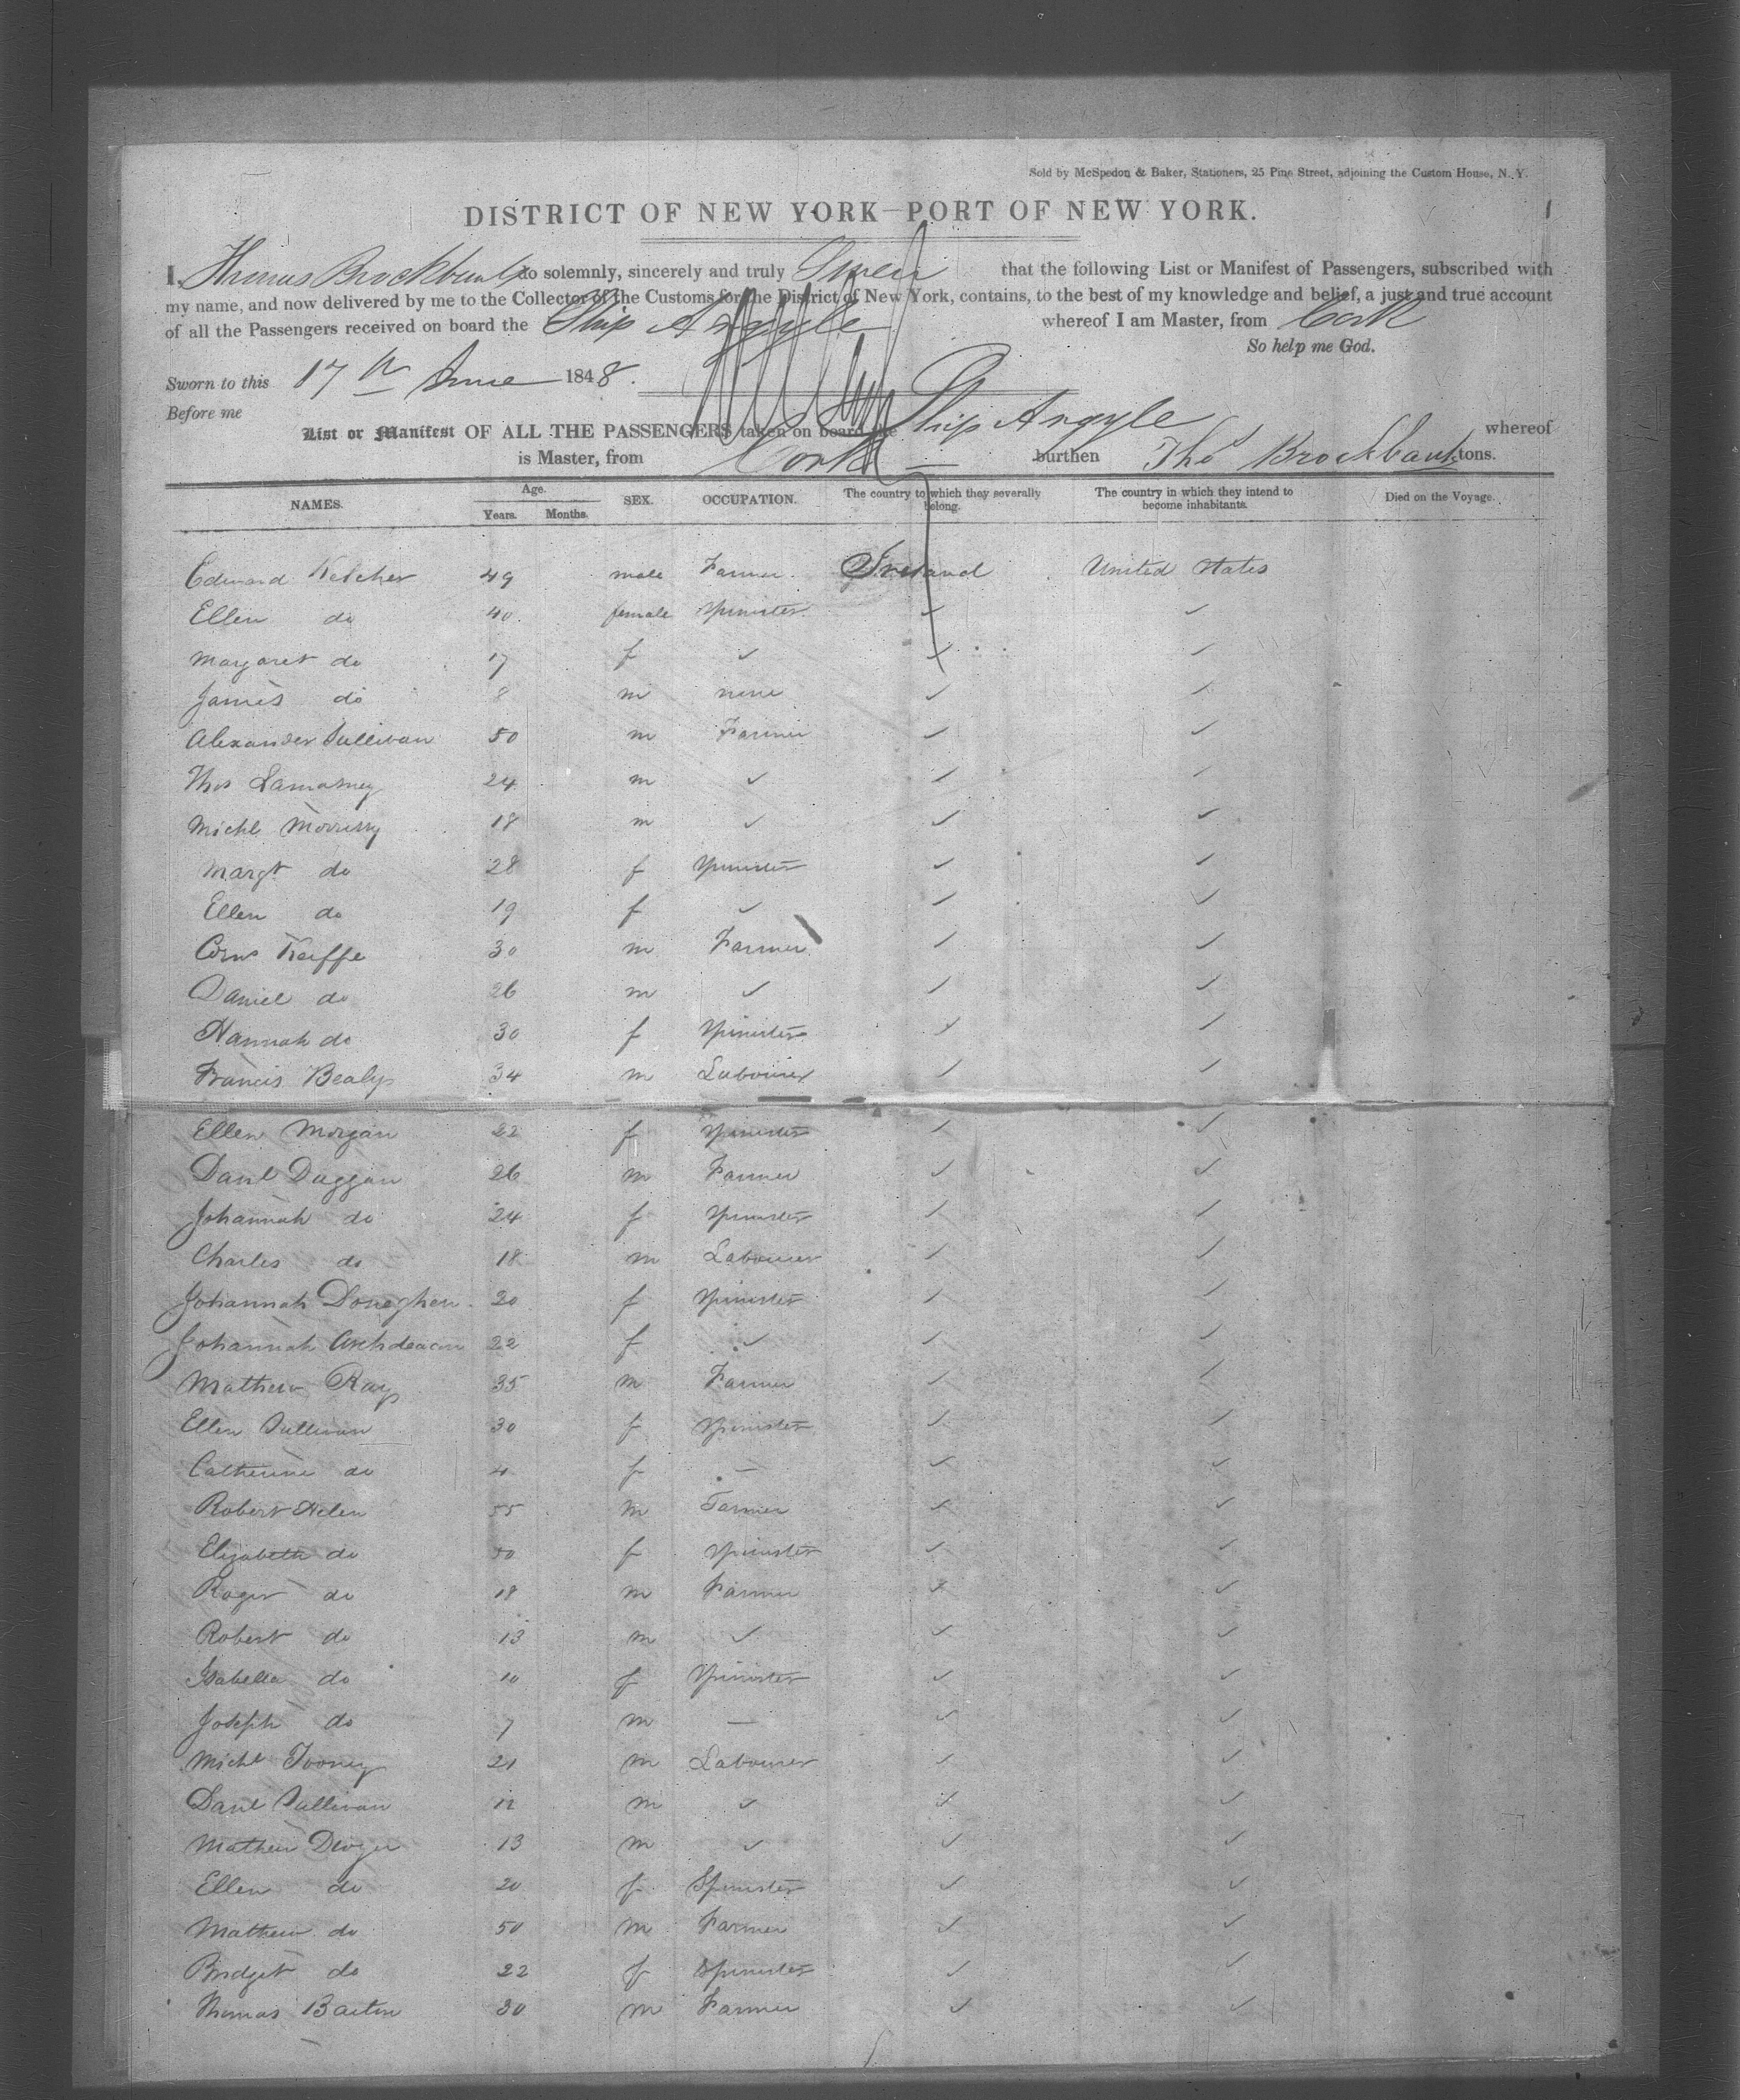 Sold by McSpedon & Baker, Stationers, 25 Pine Street, adjoining the Custom House, N. Y.
DISTRICT OF NEW YORK—PORT OF NEW YORK.
1
I, Thomas Brockbank do solemnly, sincerely and truly Swear that the following List or Manifest of Passengers, subscribed with
my name, and now delivered by me to the Collector of the Customs for the District of New York, contains, to the best of my knowledge and belief, a just and true account
of all the Passengers received on board the Ship Argyle whereof I am Master, from Cork
So help me God.
Sworn to this 17th June 1848.
Before me
List or Manifest OF ALL THE PASSENGERS taken on board the Ship Argyle whereof
is Master, from Cork burthen Thos Brockbank tons.
NAMES. Age. Years. Months. SEX. OCCUPATION. The country to which they severally belong. The country in which they intend to become inhabitants. Died on the Voyage.
Edward Kelcher 49 male Farmer Ireland United States
Ellen do 40 female Spinster ✓ ✓
Margaret do 17 f ✓ ✓ ✓
James do 8 m none ✓ ✓
Alexander Sullivan 50 m Farmer ✓ ✓
Thos Lamasney 24 m ✓ ✓ ✓
Michl Morrissy 18 m ✓ ✓ ✓
Margt do 28 f Spinster ✓ ✓
Ellen do 19 f ✓ ✓ ✓
Corns Keiffe 30 m Farmer ✓ ✓
Daniel do 26 m ✓ ✓ ✓
Hannah do 30 f Spinster ✓ ✓
Francis Bealy 34 m Labourer ✓ ✓
Ellen Morgan 22 f Spinster ✓ ✓
Danl Duggan 26 m Farmer ✓ ✓
Johannah do 24 f Spinster ✓ ✓
Charles do 18 m Labourer ✓ ✓
Johannah Doneghen 20 f Spinster ✓ ✓
Johannah Archdeacon 22 f ✓ ✓ ✓
Mathew Ray 35 m Farmer ✓ ✓
Ellen Sullivan 30 f Spinster ✓ ✓
Catherine do 4 f — ✓ ✓
Robert Helen 55 m Farmer ✓ ✓
Elizabeth do 50 f Spinster ✓ ✓
Roger do 18 m Farmer ✓ ✓
Robert do 13 m ✓ ✓ ✓
Isabella do 10 f Spinster ✓ ✓
Joseph do 7 m — ✓ ✓
Michl Twomey 21 m Labourer ✓ ✓
Danl Sullivan 12 m ✓ ✓ ✓
Mathew Dwyer 13 m ✓ ✓ ✓
Ellen do 20 f Spinster ✓ ✓
Mathew do 50 m Farmer ✓ ✓
Bridget do 22 f Spinster ✓ ✓
Thomas Barton 30 m Farmer ✓ ✓